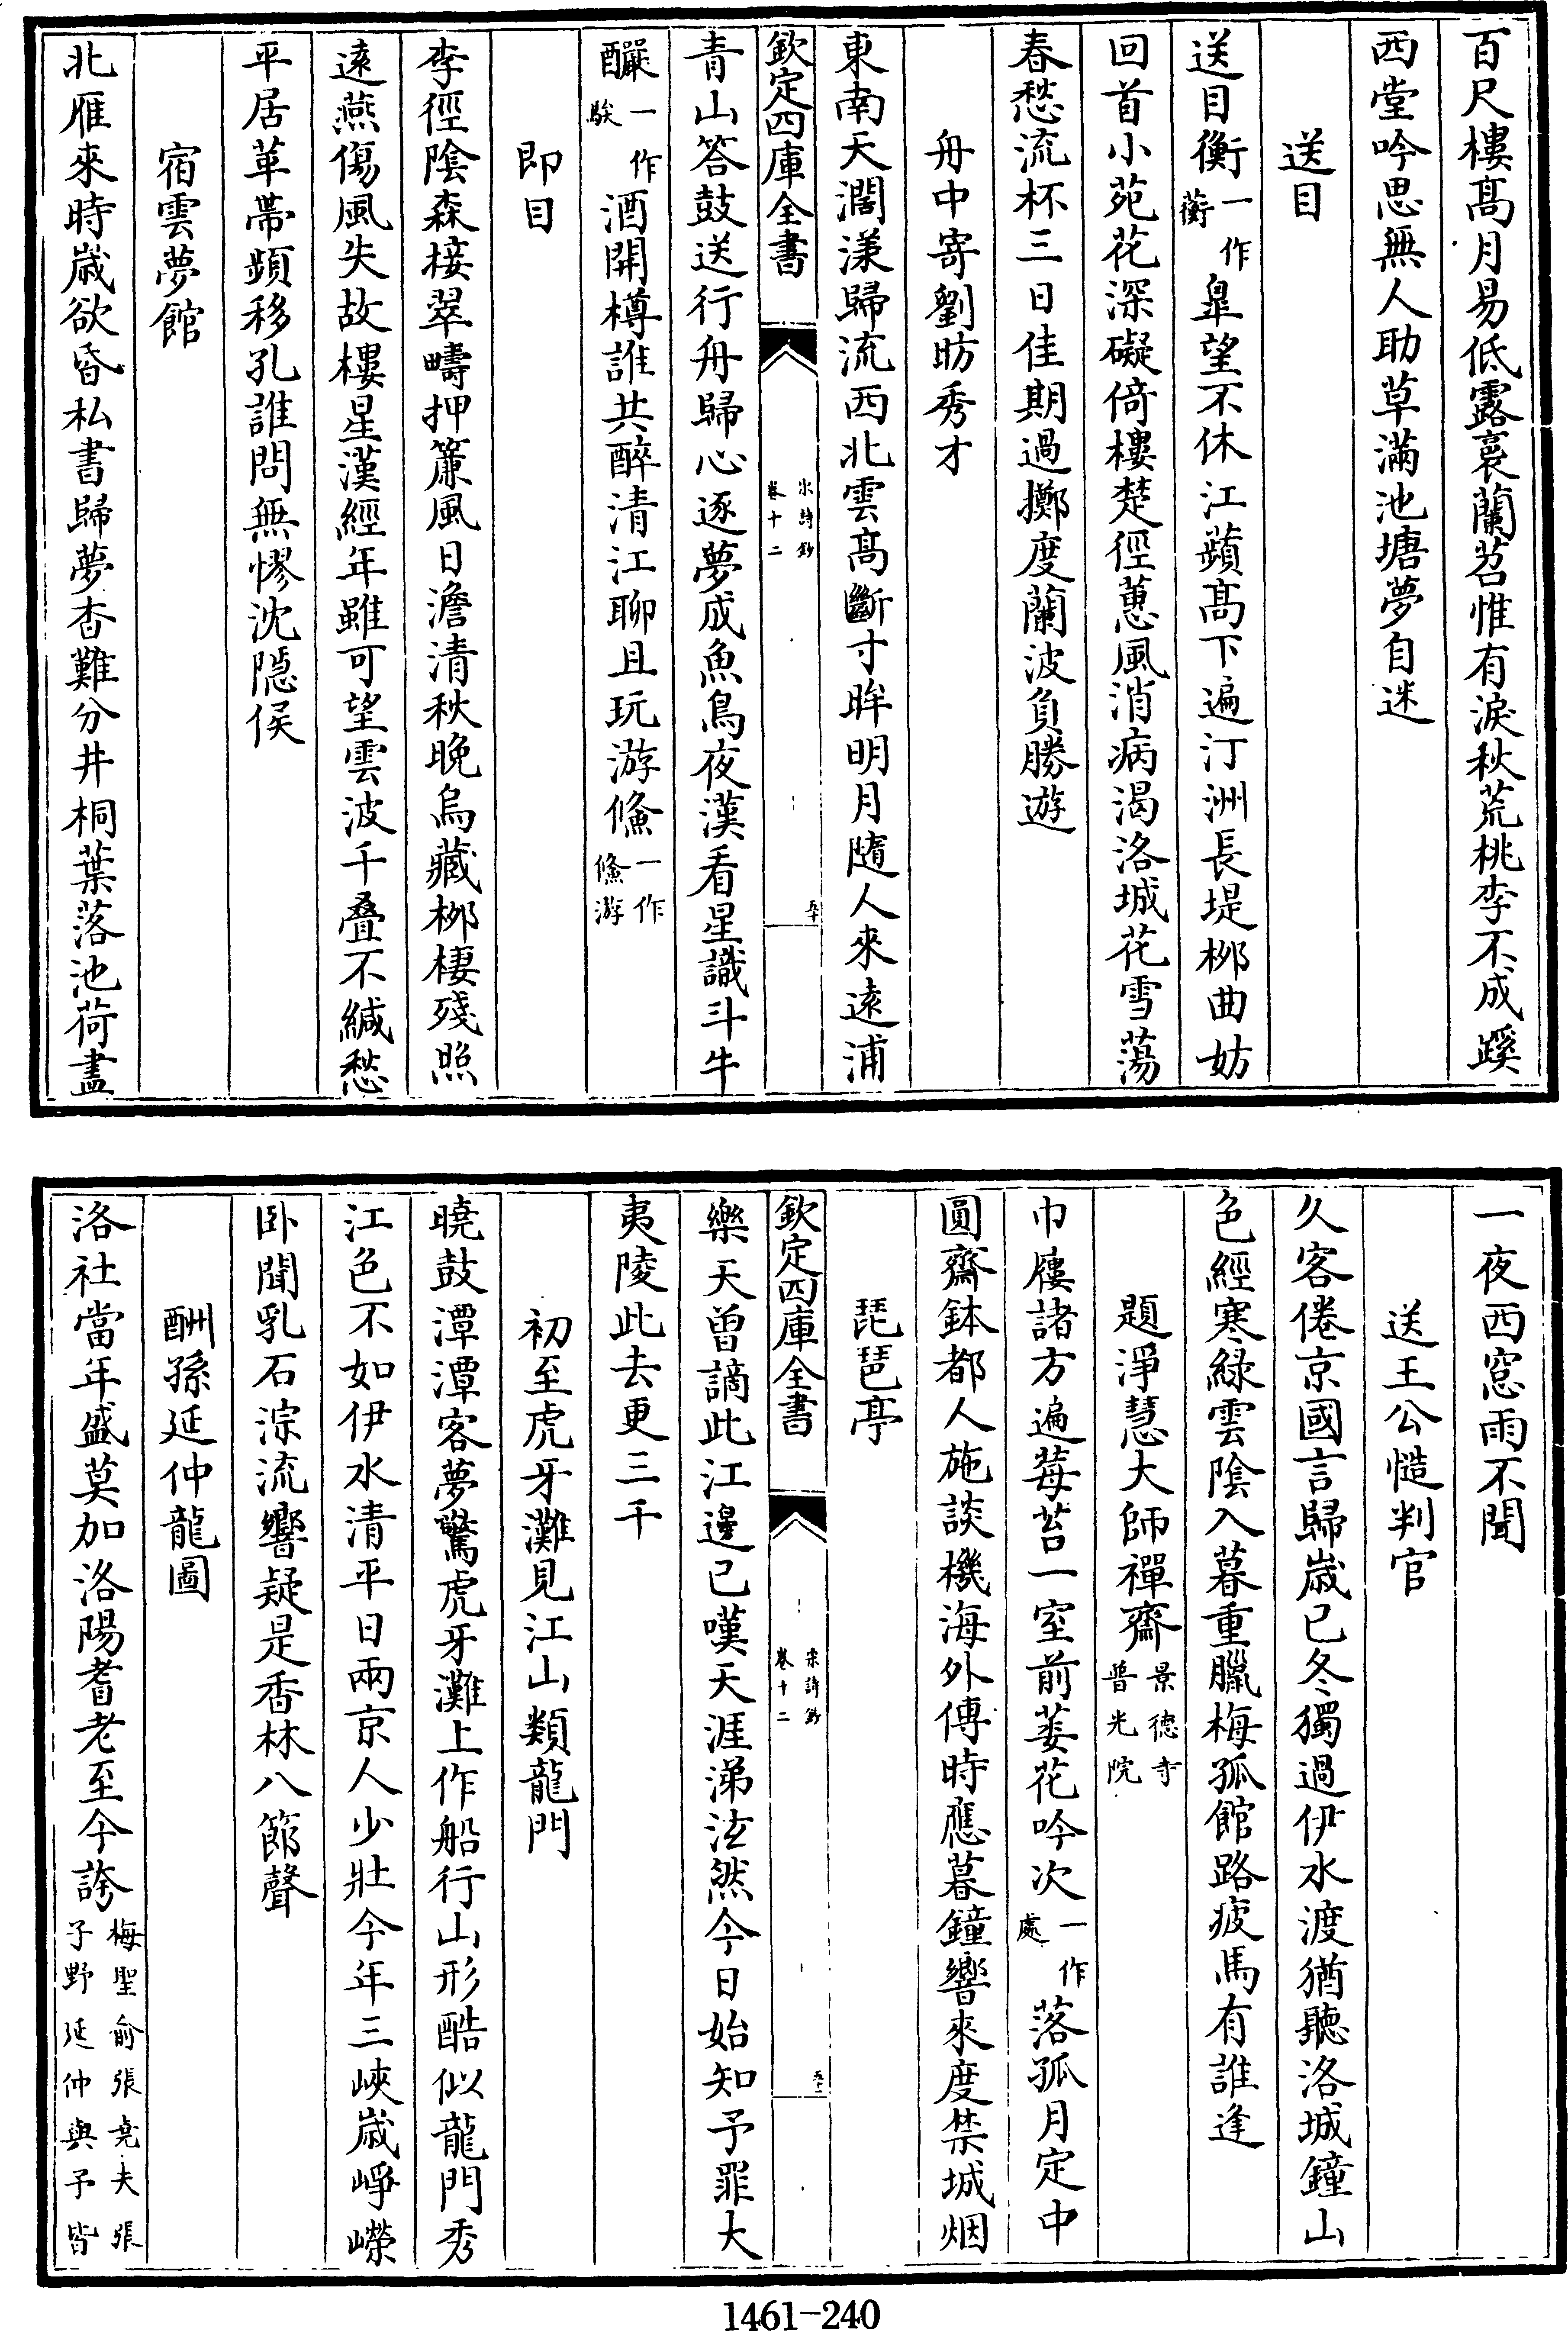 百尺樓髙月易低露裛蘭苕惟有淚秋荒桃李不成蹊
西堂吟思無人助草滿池塘夢自迷
送目
送目衡一作蘅臯望不休江蘋髙下遍汀洲長堤栁曲妨
回首小苑花深礙倚樓楚徑蕙風消病渴洛城花雪蕩
春愁流杯三日佳期過擲度蘭波負勝遊
舟中寄劉昉秀才
東南天濶漾歸流西北雲髙斷寸眸明月隨人來逺浦
欽定四庫全書
宋詩鈔
卷十二
五十
青山答鼓送行舟歸心逐夢成魚鳥夜漢看星識斗牛
釅一作騃酒開樽誰共醉清江聊且玩游鯈一作鯈游
即目
李徑隂森接翠疇押簾風日澹清秋晚烏藏栁棲殘照
逺燕傷風失故樓星漢經年雖可望雲波千叠不緘愁
平居革帶頻移孔誰問無憀沈隠侯
宿雲夢館
北雁來時嵗欲昏私書歸夢杳難分井桐葉落池荷盡
一夜西窓雨不聞
送王公慥判官
久客倦京國言歸嵗已冬獨過伊水渡猶聽洛城鐘山
色經寒緑雲隂入暮重臘梅孤館路疲馬有誰逢
題淨慧大師禪齋景徳寺普光院
巾屨諸方遍莓苔一室前菱花吟次一作處落孤月定中
圓齋鉢都人施談機海外傳時應暮鐘響來度禁城烟
琵琶亭
欽定四庫全書
宋詩鈔
卷十二
五十一
樂天曽謫此江邊已嘆天涯涕泫然今日始知予罪大
夷陵此去更三千
初至虎牙灘見江山類龍門
曉鼓潭潭客夢驚虎牙灘上作船行山形酷似龍門秀
江色不如伊水清平日兩京人少壯今年三峽嵗崢嶸
卧聞乳石淙流響疑是香林八節聲
酬孫延仲龍圖
洛社當年盛莫加洛陽耆老至今誇梅聖俞張堯夫張子野延仲與予皆
1461-240